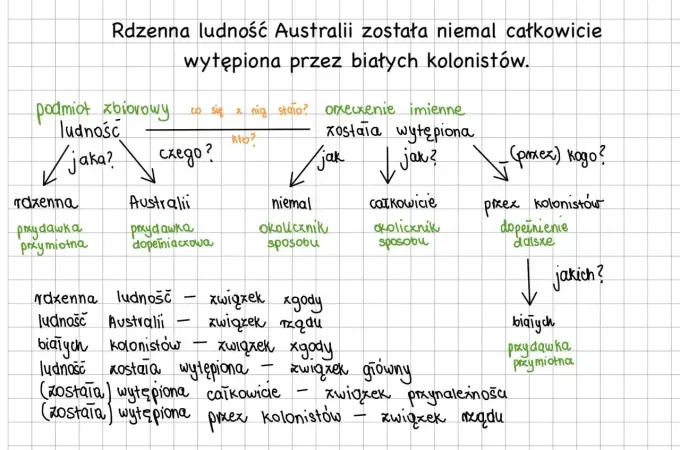 Rdzenna ludność Australii została niemal całkowicie
wytępiona przez białych kolonistów.
podmiot zbiorowy co się z nią stało? orzeczenie imienne
ludność kto? została wytępiona
jaka? czego? jak jak? (przez) kogo?
rdzenna Australii niemal całkowicie przez kolonistów
przydawka przydawka okolicznik okolicznik dopełnienie
przymiotna dopełniaczowa sposobu sposobu dalsze
jakich?
białych
przydawka
przymiotna
rdzenna ludność – związek zgody
ludność Australii – związek rządu
białych kolonistów – związek zgody
ludność została wytępiona – związek główny
(została) wytępiona całkowicie – związek przynależności
(została) wytępiona przez kolonistów – związek rządu